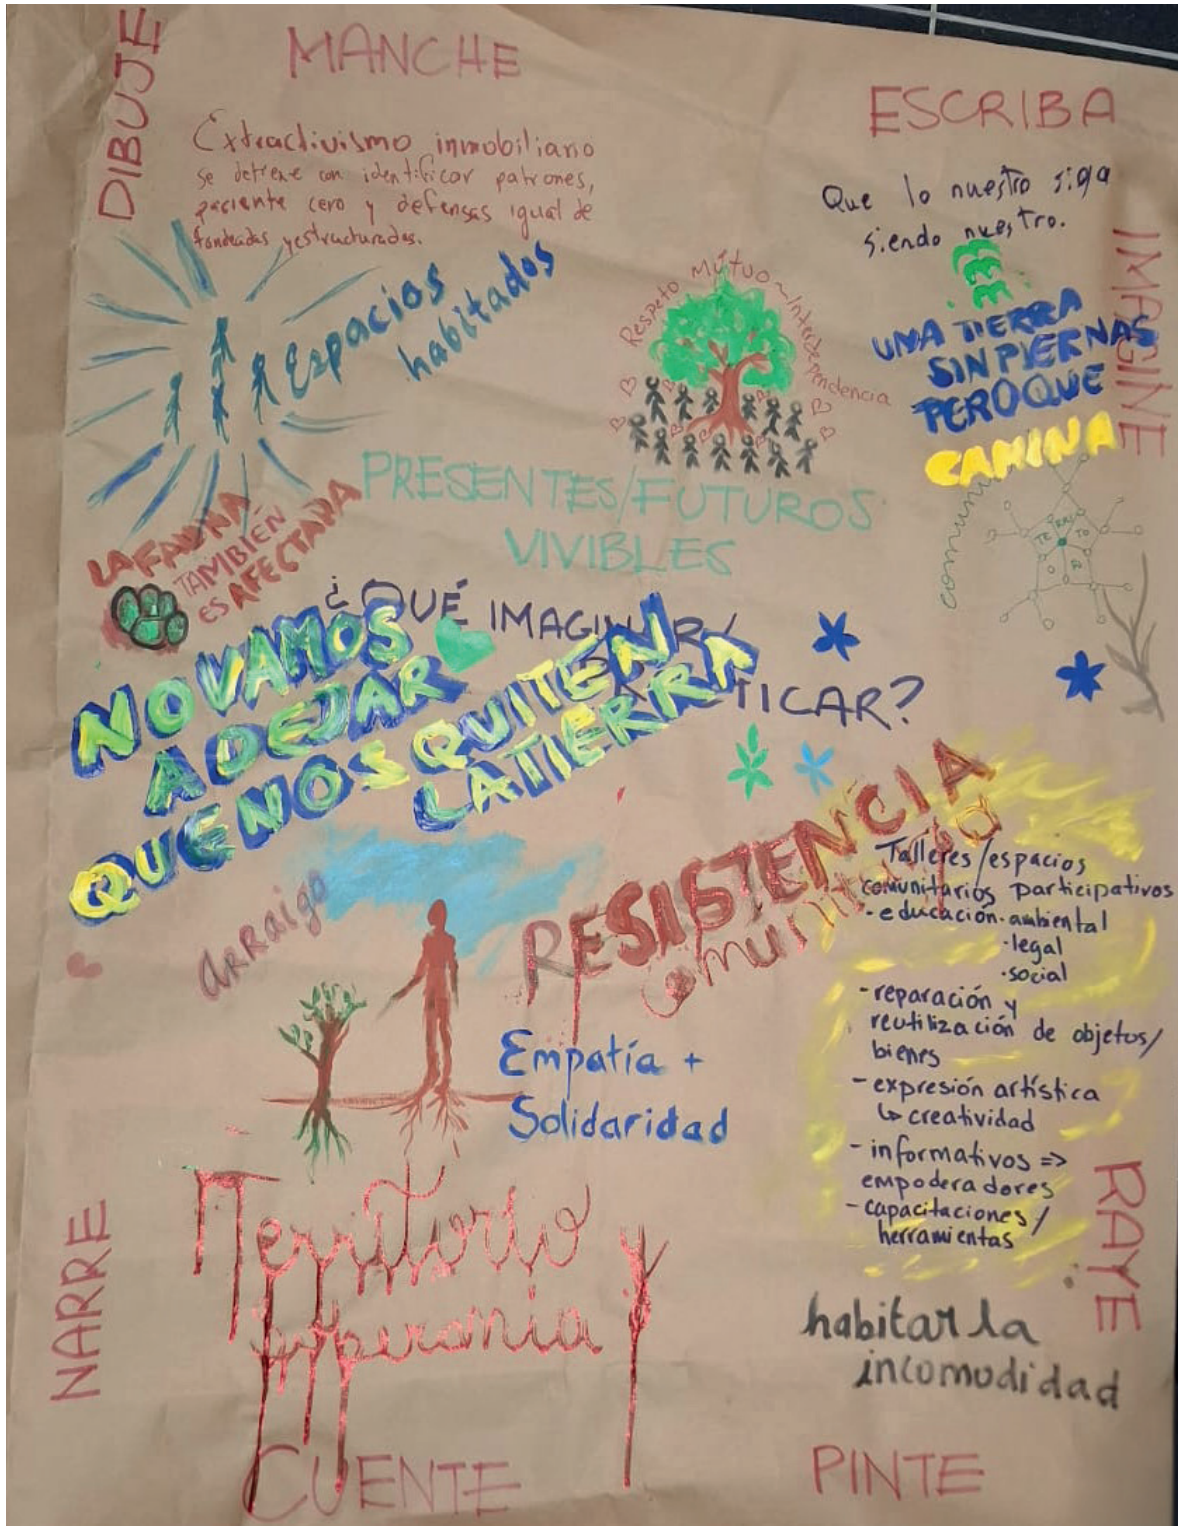 DIBUJE
MANCHE
ESCRIBA
Extractivismo inmobiliario
se detiene con identificar patrones,
paciente cero y defensas igual de
fondeadas y estructuradas.
Que lo nuestro siga
siendo nuestro.
IMAGINE
Espacios
habitados
Respeto Mútuo ~ Interdependencia
UNA TIERRA
SIN PIERNAS
PERO QUE
CAMINA
PRESENTES/FUTUROS
VIVIBLES
LA FAUNA
TAMBIÉN
ES AFECTADA
¿QUÉ IMAGINAR/
PRACTICAR?
NO VAMOS
A DEJAR
QUE NOS QUITEN
LA TIERRA
RESISTENCIA
comunitaria
arraigo
Talleres/espacios
comunitarios participativos
- educación · ambiental
· legal
· social
- reparación y
reutilización de objetos/
bienes
- expresión artística
↳ creatividad
- informativos =>
empoderadores
- capacitaciones/
herramientas
Empatía +
Solidaridad
Territorio y
soberanía
NARRE
RAYE
habitar la
incomodidad
CUENTE
PINTE